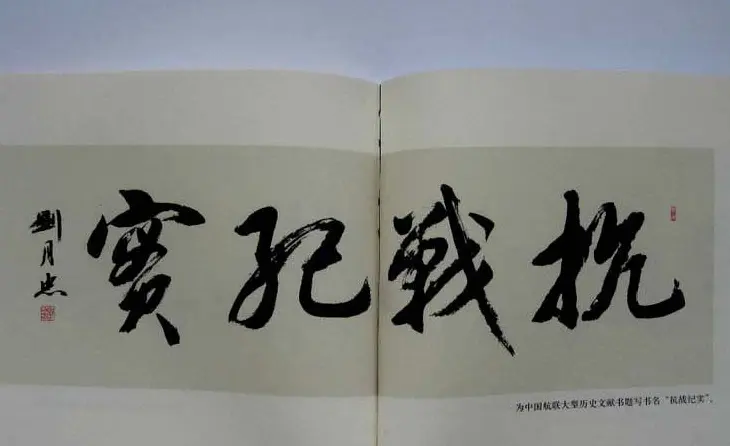 抗戰紀實
劉月忠
为中国航联大型历史文献书题写书名“抗战纪实”。